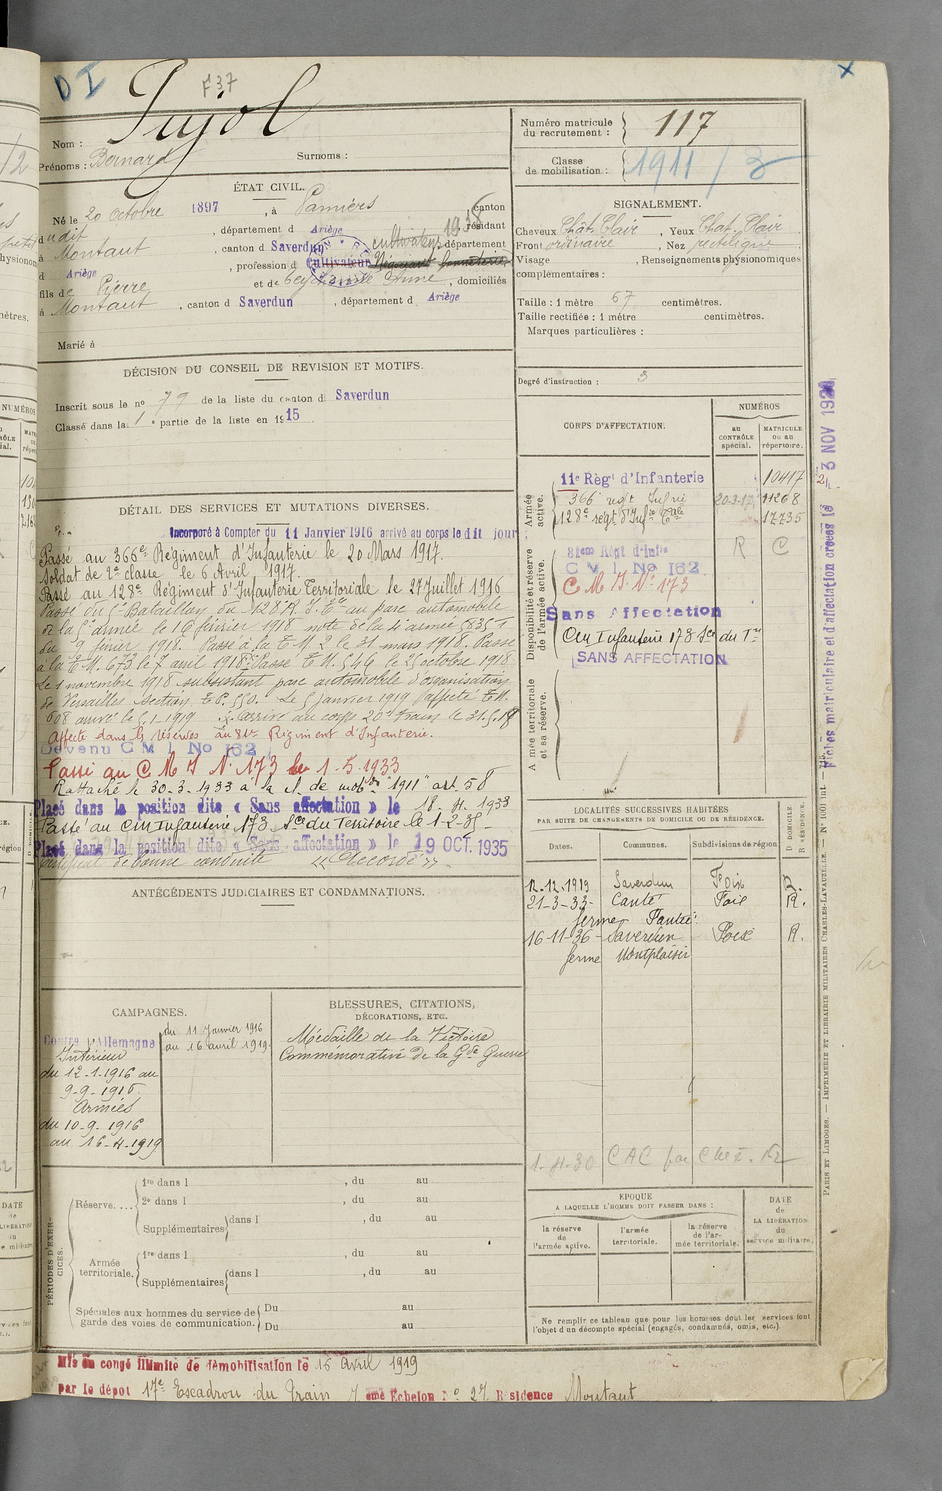 DI
F37
Pujol
Nom :
Prénoms : Bernard Surnoms :
Numéro matricule du recrutement : 117
Classe de mobilisation : 1911 / 3
ÉTAT CIVIL.
Né le 20 octobre 1897, à Pamiers canton
dudit, département d Ariège 1936 résidant
à Montaut, canton d Saverdun cultivateur département
d Ariège, profession d Cultivateur Négociant
fils de Pierre et de Anne, domiciliés
à Montaut, canton d Saverdun, département d Ariège
Marié à
SIGNALEMENT.
Cheveux Chât. Clair, Yeux Chat. Clair
Front ordinaire, Nez rectiligne
Visage , Renseignements physionomiques
complémentaires :
Taille : 1 mètre 67 centimètres.
Taille rectifiée : 1 mètre centimètres.
Marques particulières :
Degré d'instruction : 3
DÉCISION DU CONSEIL DE REVISION ET MOTIFS.
Inscrit sous le no 79 de la liste du canton d Saverdun
Classé dans la 1e partie de la liste en 1915
DÉTAIL DES SERVICES ET MUTATIONS DIVERSES.
Incorporé à Compter du 11 Janvier 1916 arrivé au corps le dit jour
Passé au 366e Régiment d'Infanterie le 20 Mars 1917.
Soldat de 2e classe le 6 Avril 1917.
Passé au 128e Régiment d'Infanterie Territoriale le 27 Juillet 1916
Passé du Bataillon du 128 R. I. Tle au parc automobile
de la armée le 16 février 1918 note de la 4e armée 835 T
du 9 février 1918. Passé à la T.M. 2 le 31 mars 1918. Passé
à la T.M. 673 le 7 avril 1918. Passé T.M. 546 le 25 octobre 1918
Le 1 novembre 1918 subsistant parc automobile d'organisation
de Versailles section T.P. 550. Le 5 janvier 1919 affecté T.M.
608 arrivé le 5.1.1919. arrivé au corps 20e Train le 31.5.19
Affecté dans les réserves au 81e Régiment d'Infanterie.
Devenu C M I No 162
Passé au C M I No 173 le 1-5-1933
Rattaché le 30-3-1933 à la cl. de mobon "1911" art. 58
Placé dans la position dite « Sans affectation » le 18-11-1933
Passé au CM Infanterie 173 Son du Territoire le 1-2-35
Placé dans la position dite « Sans affectation » le 19 OCT. 1935
Certificat de bonne conduite "Accordé"
CORPS D'AFFECTATION.
NUMÉROS
au CONTRÔLE spécial.
MATRICULE ou au répertoire.
Armée active.
11e Régt d'Infanterie 10417
366e regt Infrie 20.3.17 11268
128e régt d'Infie Tale 17735
Disponibilité et réserve de l'armée active.
81eme Régt d'Infie R C
C M I. No 162
C M I. No 173
Sans Affectation
CM Infanterie 173 Son du Tre
SANS AFFECTATION
Armée territoriale et sa réserve.
ANTÉCÉDENTS JUDICIAIRES ET CONDAMNATIONS.
LOCALITÉS SUCCESSIVES HABITÉES
PAR SUITE DE CHANGEMENTS DE DOMICILE OU DE RÉSIDENCE.
Dates. Communes. Subdivisions de région D DOMICILE. R RÉSIDENCE.
12-12-1919 Saverdun Foix
21-3-33- Canté Foix R.
ferme
16-11-36- Saverdun Foix R.
ferme Montplaisir
CAC par
CAMPAGNES.
Contre l'Allemagne
du 11 Janvier 1916
au 16 avril 1919
Intérieur
du 12-1-1916 au
9-9-1916.
Armées
du 10-9-1916
au 16-4-1919
BLESSURES, CITATIONS,
DÉCORATIONS, ETC.
Médaille de la Victoire
Commémorative de la Gde Guerre
PÉRIODES D'EXERCICES.
Réserve.... 1re dans l , du au
2e dans l , du au
Supplémentaires dans l , du au
Armée territoriale. 1re dans l , du au
Supplémentaires dans l , du au
Spéciales aux hommes du service de garde des voies de communication. Du au
Du au
ÉPOQUE
A LAQUELLE L'HOMME DOIT PASSER DANS :
la réserve de l'armée active.
l'armée territoriale.
la réserve de l'armée territoriale.
DATE de LA LIBÉRATION du service militaire.
Ne remplir ce tableau que pour les hommes dont les services font
l'objet d'un décompte spécial (engagés, condamnés, omis, etc.).
Mis en congé illimité de démobilisation le 15 Avril 1919
par le dépôt 17e Escadron du Train 7 ème Echelon No 27 Résidence Montaut
Fiches matriculaire et d'affectation créées le 3 NOV 192
PARIS ET LIMOGES. — IMPRIMERIE ET LIBRAIRIE MILITAIRES CHARLES-LAVAUZELLE. — No 1001 int.